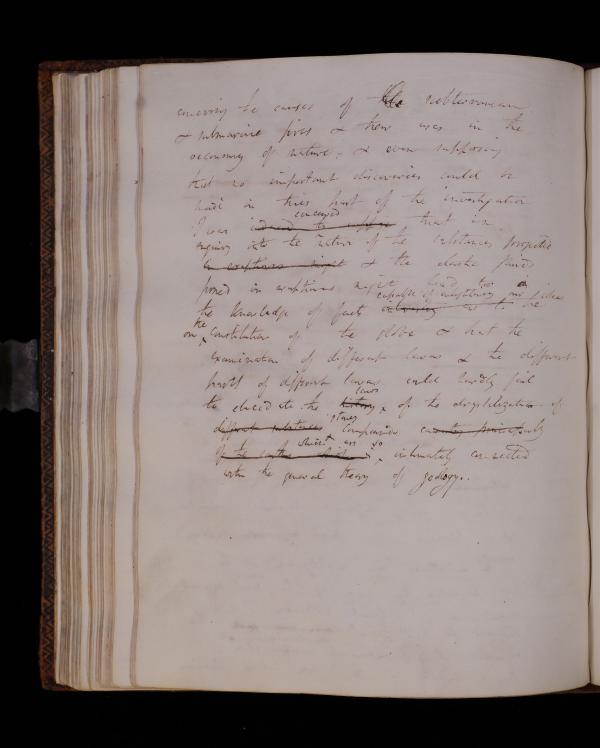 concerning the causes of the subterranean
& submarine fires & their uses in the
oeconomy of nature; & even supposing
that no important discoveries could be
made in this part of the investigation
conceived
I was induced to suppose that in
enquiry into the nature of the substances projected
in eruptions might & the elastic fluids
formed in eruptions might lead to a
capable of enlightening our ideas
the knowledge of facts as to the
on the constitution of the globe & that the
examination of different lavas & the different
parts of different lavas could hardly fail
laws
to elucidate the history of the crystallization of
stoney
different substances compounds
which are so
of the earths which is intimately connected
with the general theory of geology.